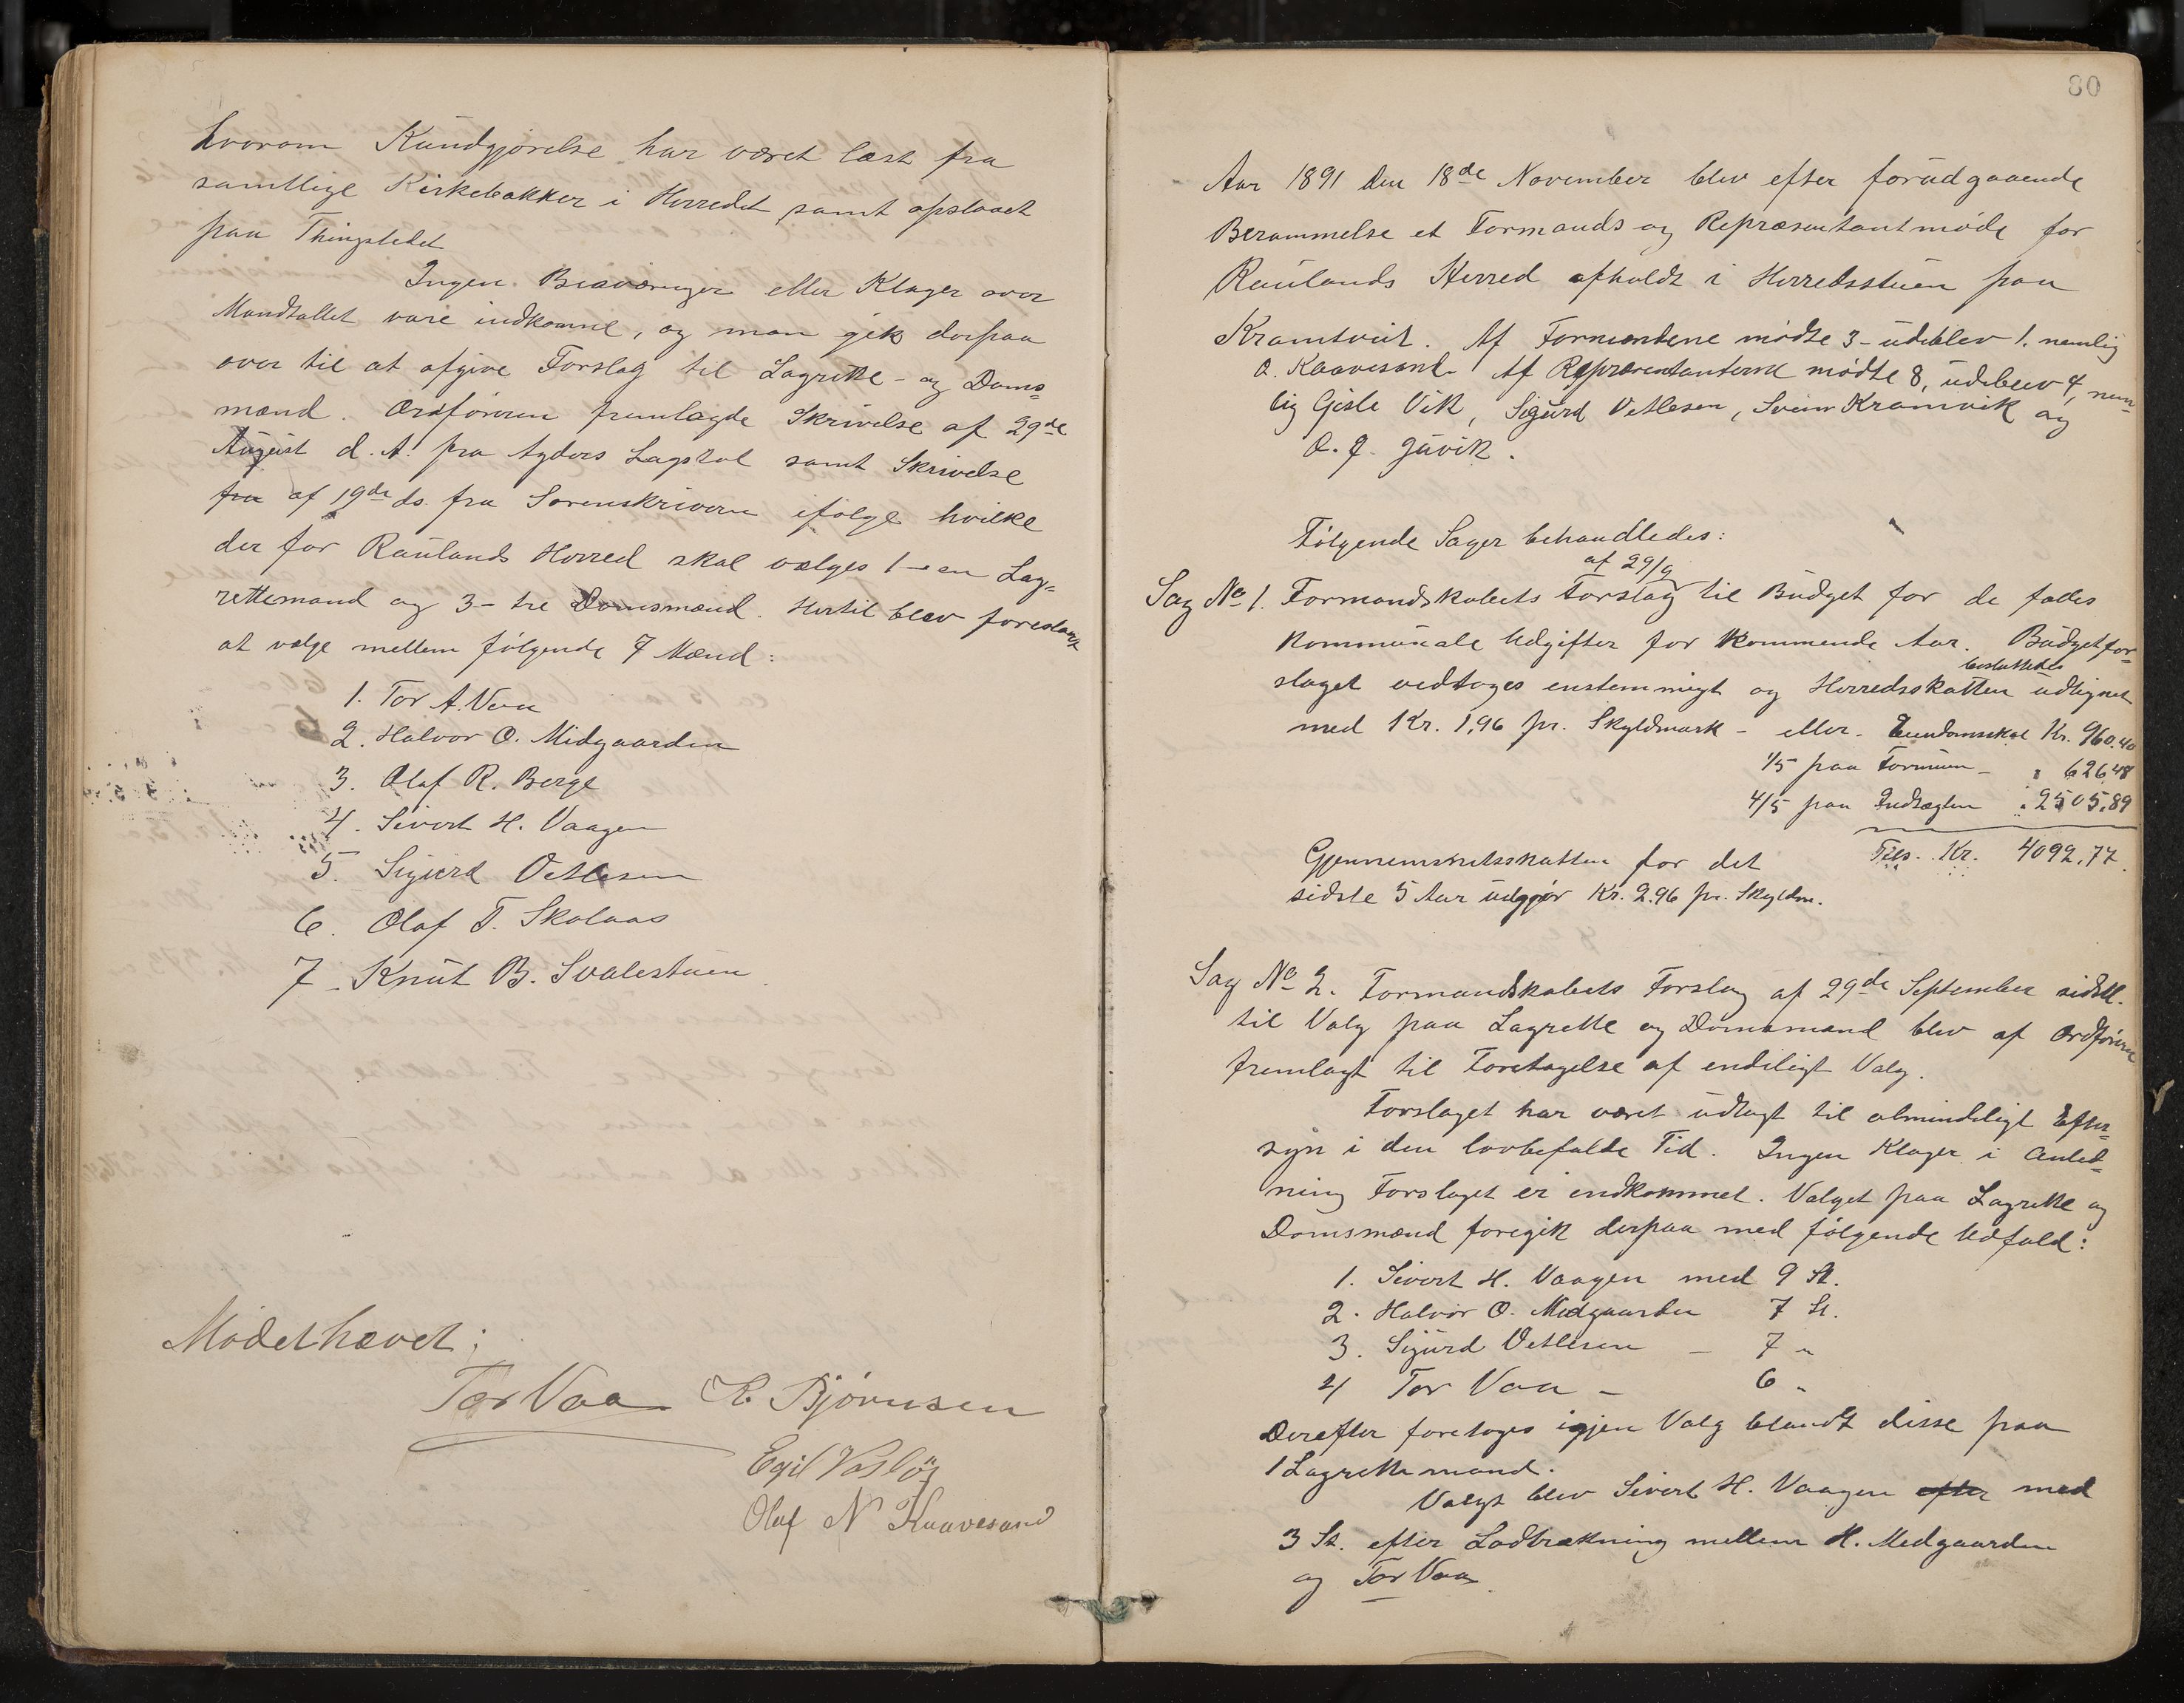 hvorom Kundgjørelse har været læst fra
samtlige Kirkebakker i Herredet samt opslaaet
paa Thingstedet
Ingen Besværinger eller Klager over
Mandtallet vare indkomne, og man gik derpaa
over til at afgive Forslag til Lagrette- og Doms=
mænd. Ordføreren fremlagde Skrivelse af 29de
August d. A. fra Agders Lagstol samt Skrivelse
fra af 19de ds. fra Sorenskriveren ifølge hvilke
der for Raulands Herred skal vælges 1 - en Lag=
rettemand og 3 - tre Domsmænd. Hertil blev foreslaaet
at vælge mellem følgende 7 Mænd:
1. Tor A. Vaa
2. Halvor O. Midgaarden
3. Olaf R. Berge
4. Sivert H. Vaagen
5. Sigurd Vetlesen
6. Olaf T. Skalaas
7. Knut B. Svalestuen
Mødet hævet;
Tor Vaa K. Bjørnsen
Egil Vasløs
Olaf N Kaavesand
80
Aar 1891 den 18de November blev efter forudgaaende
Berammelse et Formands og Repræsentantmøde for
Raulands Herred afholdt i Herredsstuen paa
Kramtveit. Af Formændene mødte 3 - udeblev 1. nemlig
O. Kaavesand. Af Repræsentanterne mødte 8, udeblev 4, nem=
lig Gisle Vik, Sigurd Vetlesen, Svein Kramvik og
O. J. Gávik.
Følgende Sager behandledes:
af 29/9
Sag No 1. Formandskabets Forslag til Budget for de fælles
kommunale Udgifter for kommende Aar. Budgetfor=
besluttedes
slaget vedtoges enstemmigt og Herredsskatten udlignet
med Kr. 1,96 pr. Skyldmark - eller. Eiendomsskat Kr. 960.40
1/5 paa Formuen - " 626,48
4/5 paa Indtægten " 2505,89
Gjennemsnitsskatten for det Tils. Kr. 4092,77.
sidste 5 Aar udgjør Kr. 2.96 pr. Skyldm.
Sag No 2. Formandskabets Forslag af 29de September sidstl.
til Valg paa Lagrette og Domsmænd blev af Ordføreren
fremlagt til Foretagelse af endeligt Valg.
Forslaget har været udlagt til almindeligt Efter=
syn i den lovbefalde Tid. Ingen Klager i Anled=
ning Forslaget er indkommet. Valget paa Lagrette og
Domsmænd foregik derpaa med følgende Udfald:
1. Sivert H. Vaagen med 9 St.
2. Halvor O. Midgaarden 7 St.
3. Sigurd Vetlesen - 7 "
4 Tor Vaa - 6 "
Derefter foretoges igjen Valg blandt disse paa
1 Lagrettemand.
Valgt blev Sivert H. Vaagen efter med
3 St. efter Lodtrækning mellem H. Medgaarden
og Tor Vaa.